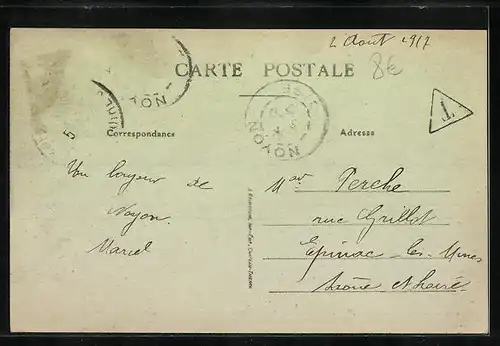 2 Août 1917
8€
CARTE POSTALE
NOYON
NOYON
T
Correspondance
Adresse
Un bonjour de
Noyon
Marcel
Perche
rue Grillot
Epinac les Mines
Saône et Loire